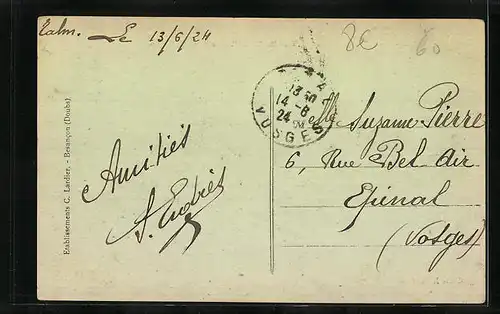 Le 13/6/24
8€
60
13 30
14-6
24
VOSGES
Elle Suzanne Pierre
6, Rue Bel Air
Epinal
(Vosges)
Amitiés
Etablissements C. Lardier. - Besançon (Doubs)